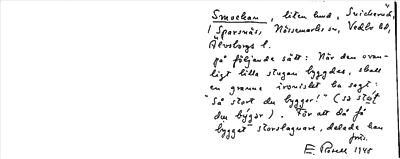 Smockan, liten lund, Snickerud,
/ Sparsnäs, Nössemarks sn, Vedbo hd,
Älvsborgs l.
på följande sätt: När den ovan-
ligt lilla stugan byggdes, skall
en granne ironiskt ha sagt:
"Så stort du bygger!" (så stórt
du býgär). För att då få
bygget storslagnare, delade han
E. Rosell 1945